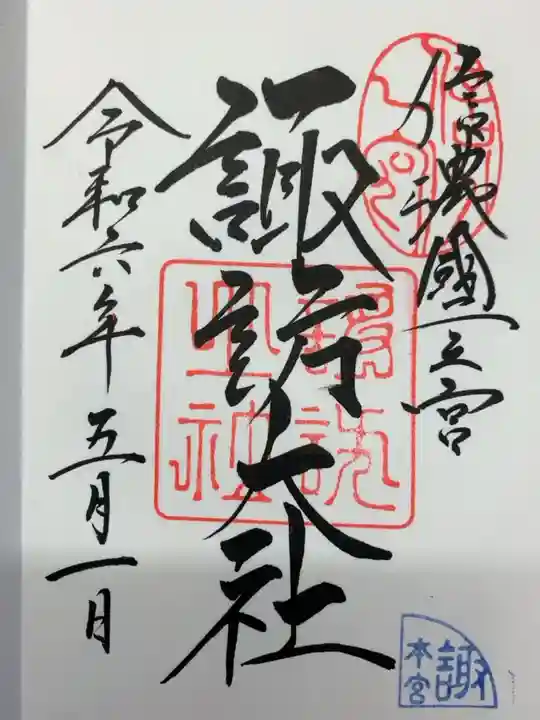 信濃國一之宮
諏訪大社
令和六年五月一日
諏
本宮